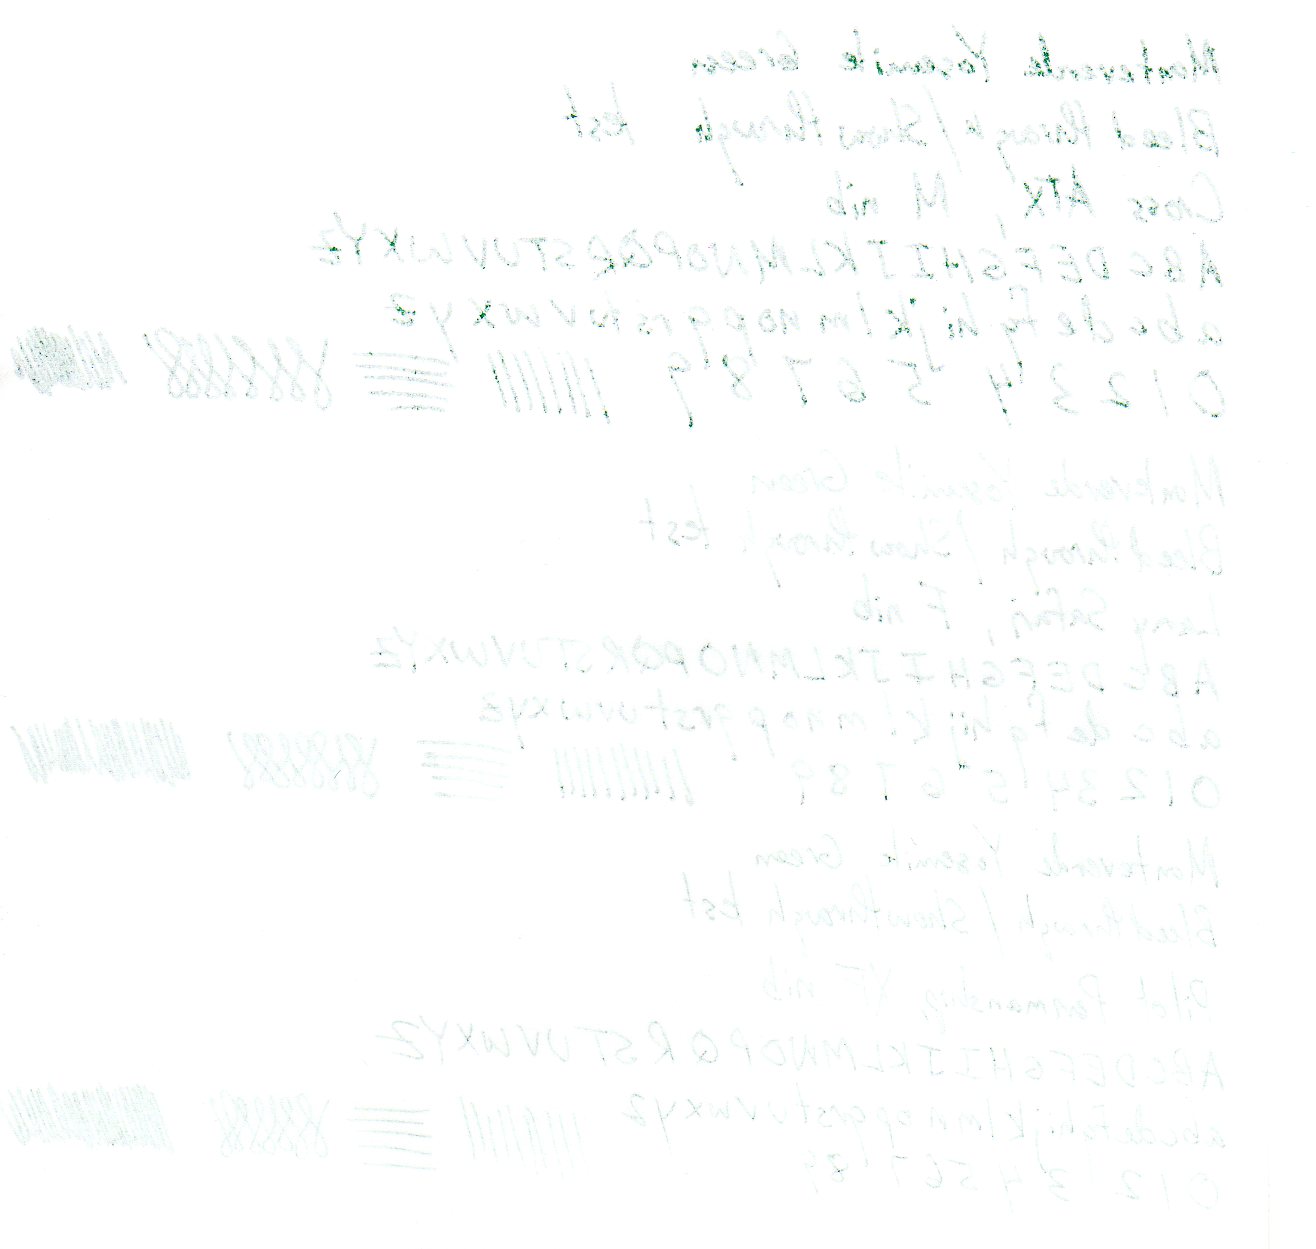 Monteverde Yosemite Green
Bleedthrough/Showthrough test
Cross ATX, M nib
ABCDEFGHIJKLMNOPQRSTUVWXYZ
abcdefghijklmnopqrstuvwxyz
0123456789
Monteverde Yosemite Green
Bleedthrough/Showthrough test
Lamy Safari, F nib
ABCDEFGHIJKLMNOPQRSTUVWXYZ
abcdefghijklmnopqrstuvwxyz
0123456789
Monteverde Yosemite Green
Bleedthrough/Showthrough test
Pilot Penmanship XF nib
ABCDEFGHIJKLMNOPQRSTUVWXYZ
abcdefghijklmnopqrstuvwxyz
0123456789